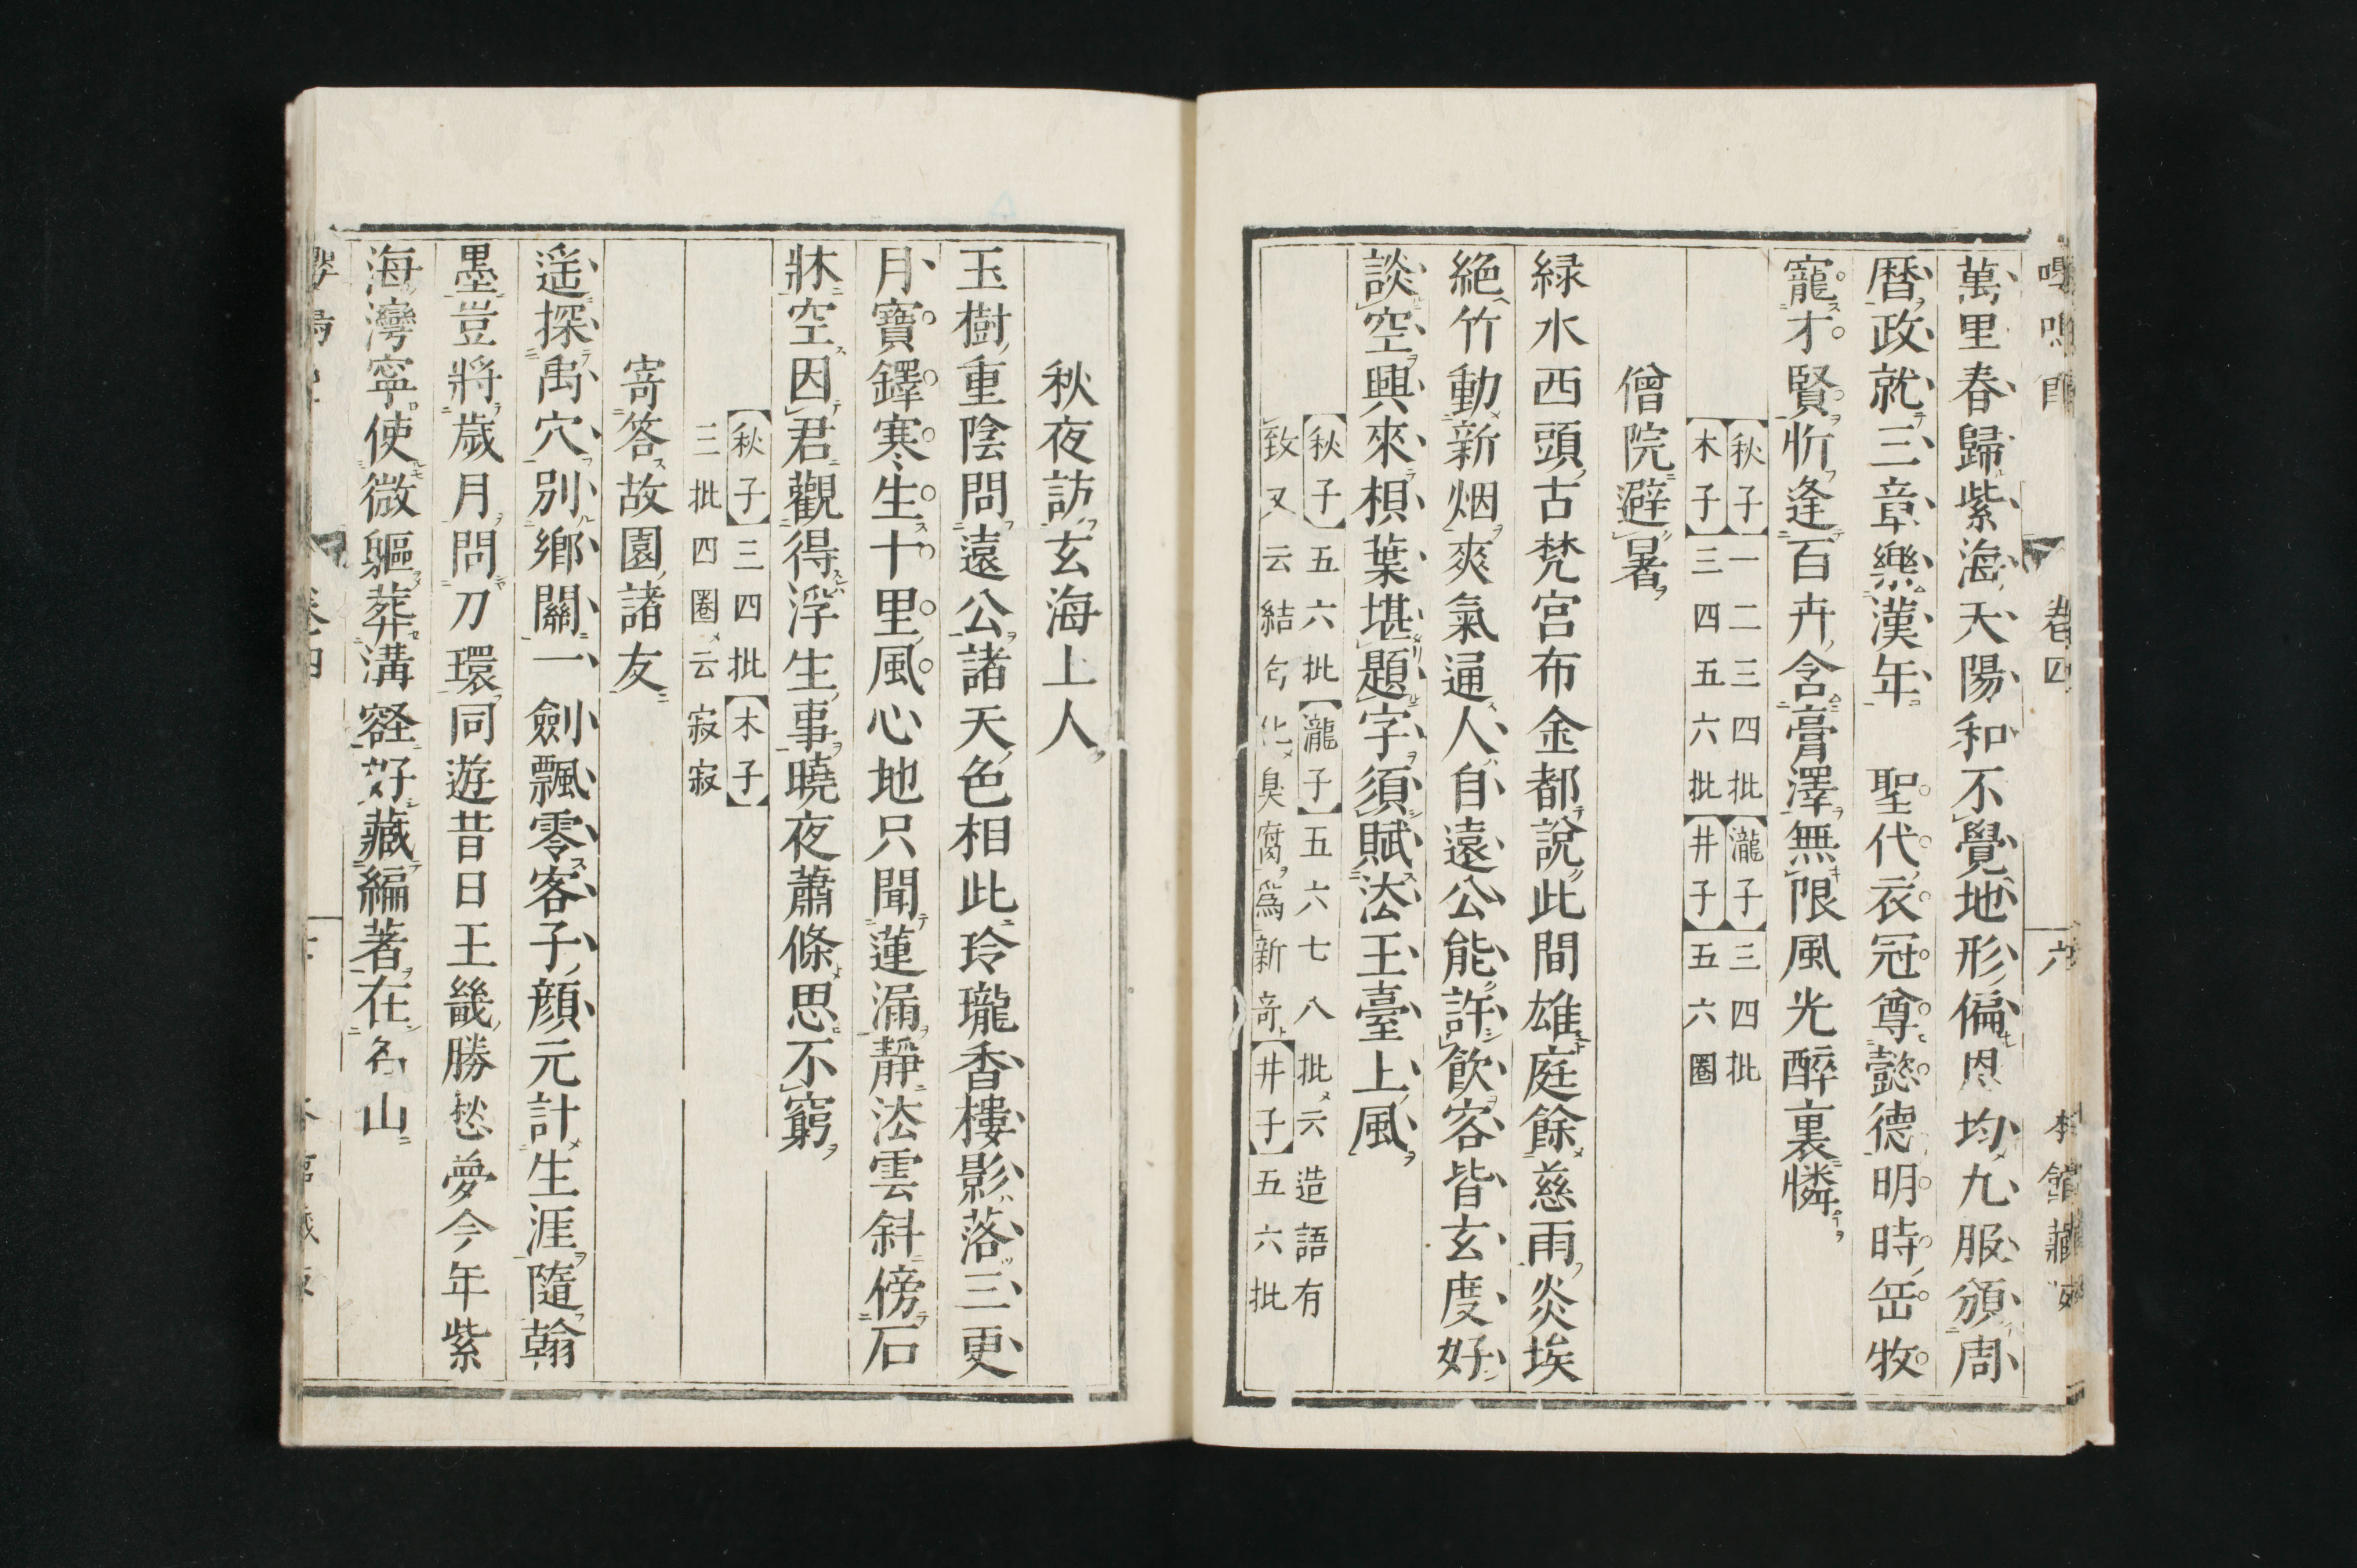 卷四
六
萬里春歸紫海天陽和不覺地形偏恩均九服頒周
曆政就三章樂漢年　聖代衣冠尊懿德明時岳牧
寵才賢忻逢百卉含膏澤無限風光醉裏憐
【秋子】一二三四批【瀧子】三四批
【木子】三四五六批【井子】五六圈
僧院避暑
緑水西頭古梵宮布金都說此間雄庭餘慈雨炎埃
絕竹動新烟爽氣通人自遠公能許飲客皆玄度好
談空興來柤葉堪題字須賦法王臺上風
【秋子】五六批【瀧子】五六七八批云造語有
致又云結句化臭腐爲新奇【井子】五六批
秋夜訪玄海上人
玉樹重陰問遠公諸天色相此玲瓏香樓影落三更
月寶鐸寒生十里風心地只聞蓮漏靜法雲斜傍石
牀空因君觀得浮生事曉夜蕭條思不窮
【秋子】三四批【木子】
三批四圈云寂寂
寄答故園諸友
遥探禹穴別鄉關一劍飄零客子顏元計生涯隨翰
墨豈將歲月問刀環同遊昔日王畿勝愁夢今年紫
海灣寧使微軀葬溝壑好藏編著在名山